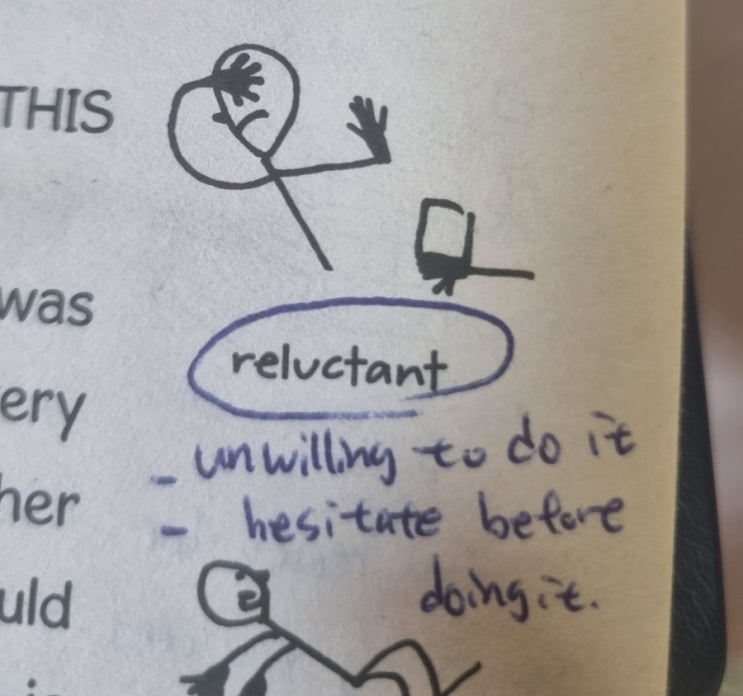 THIS
was
reluctant
ery
- unwilling to do it
her
- hesitate before
doing it.
uld